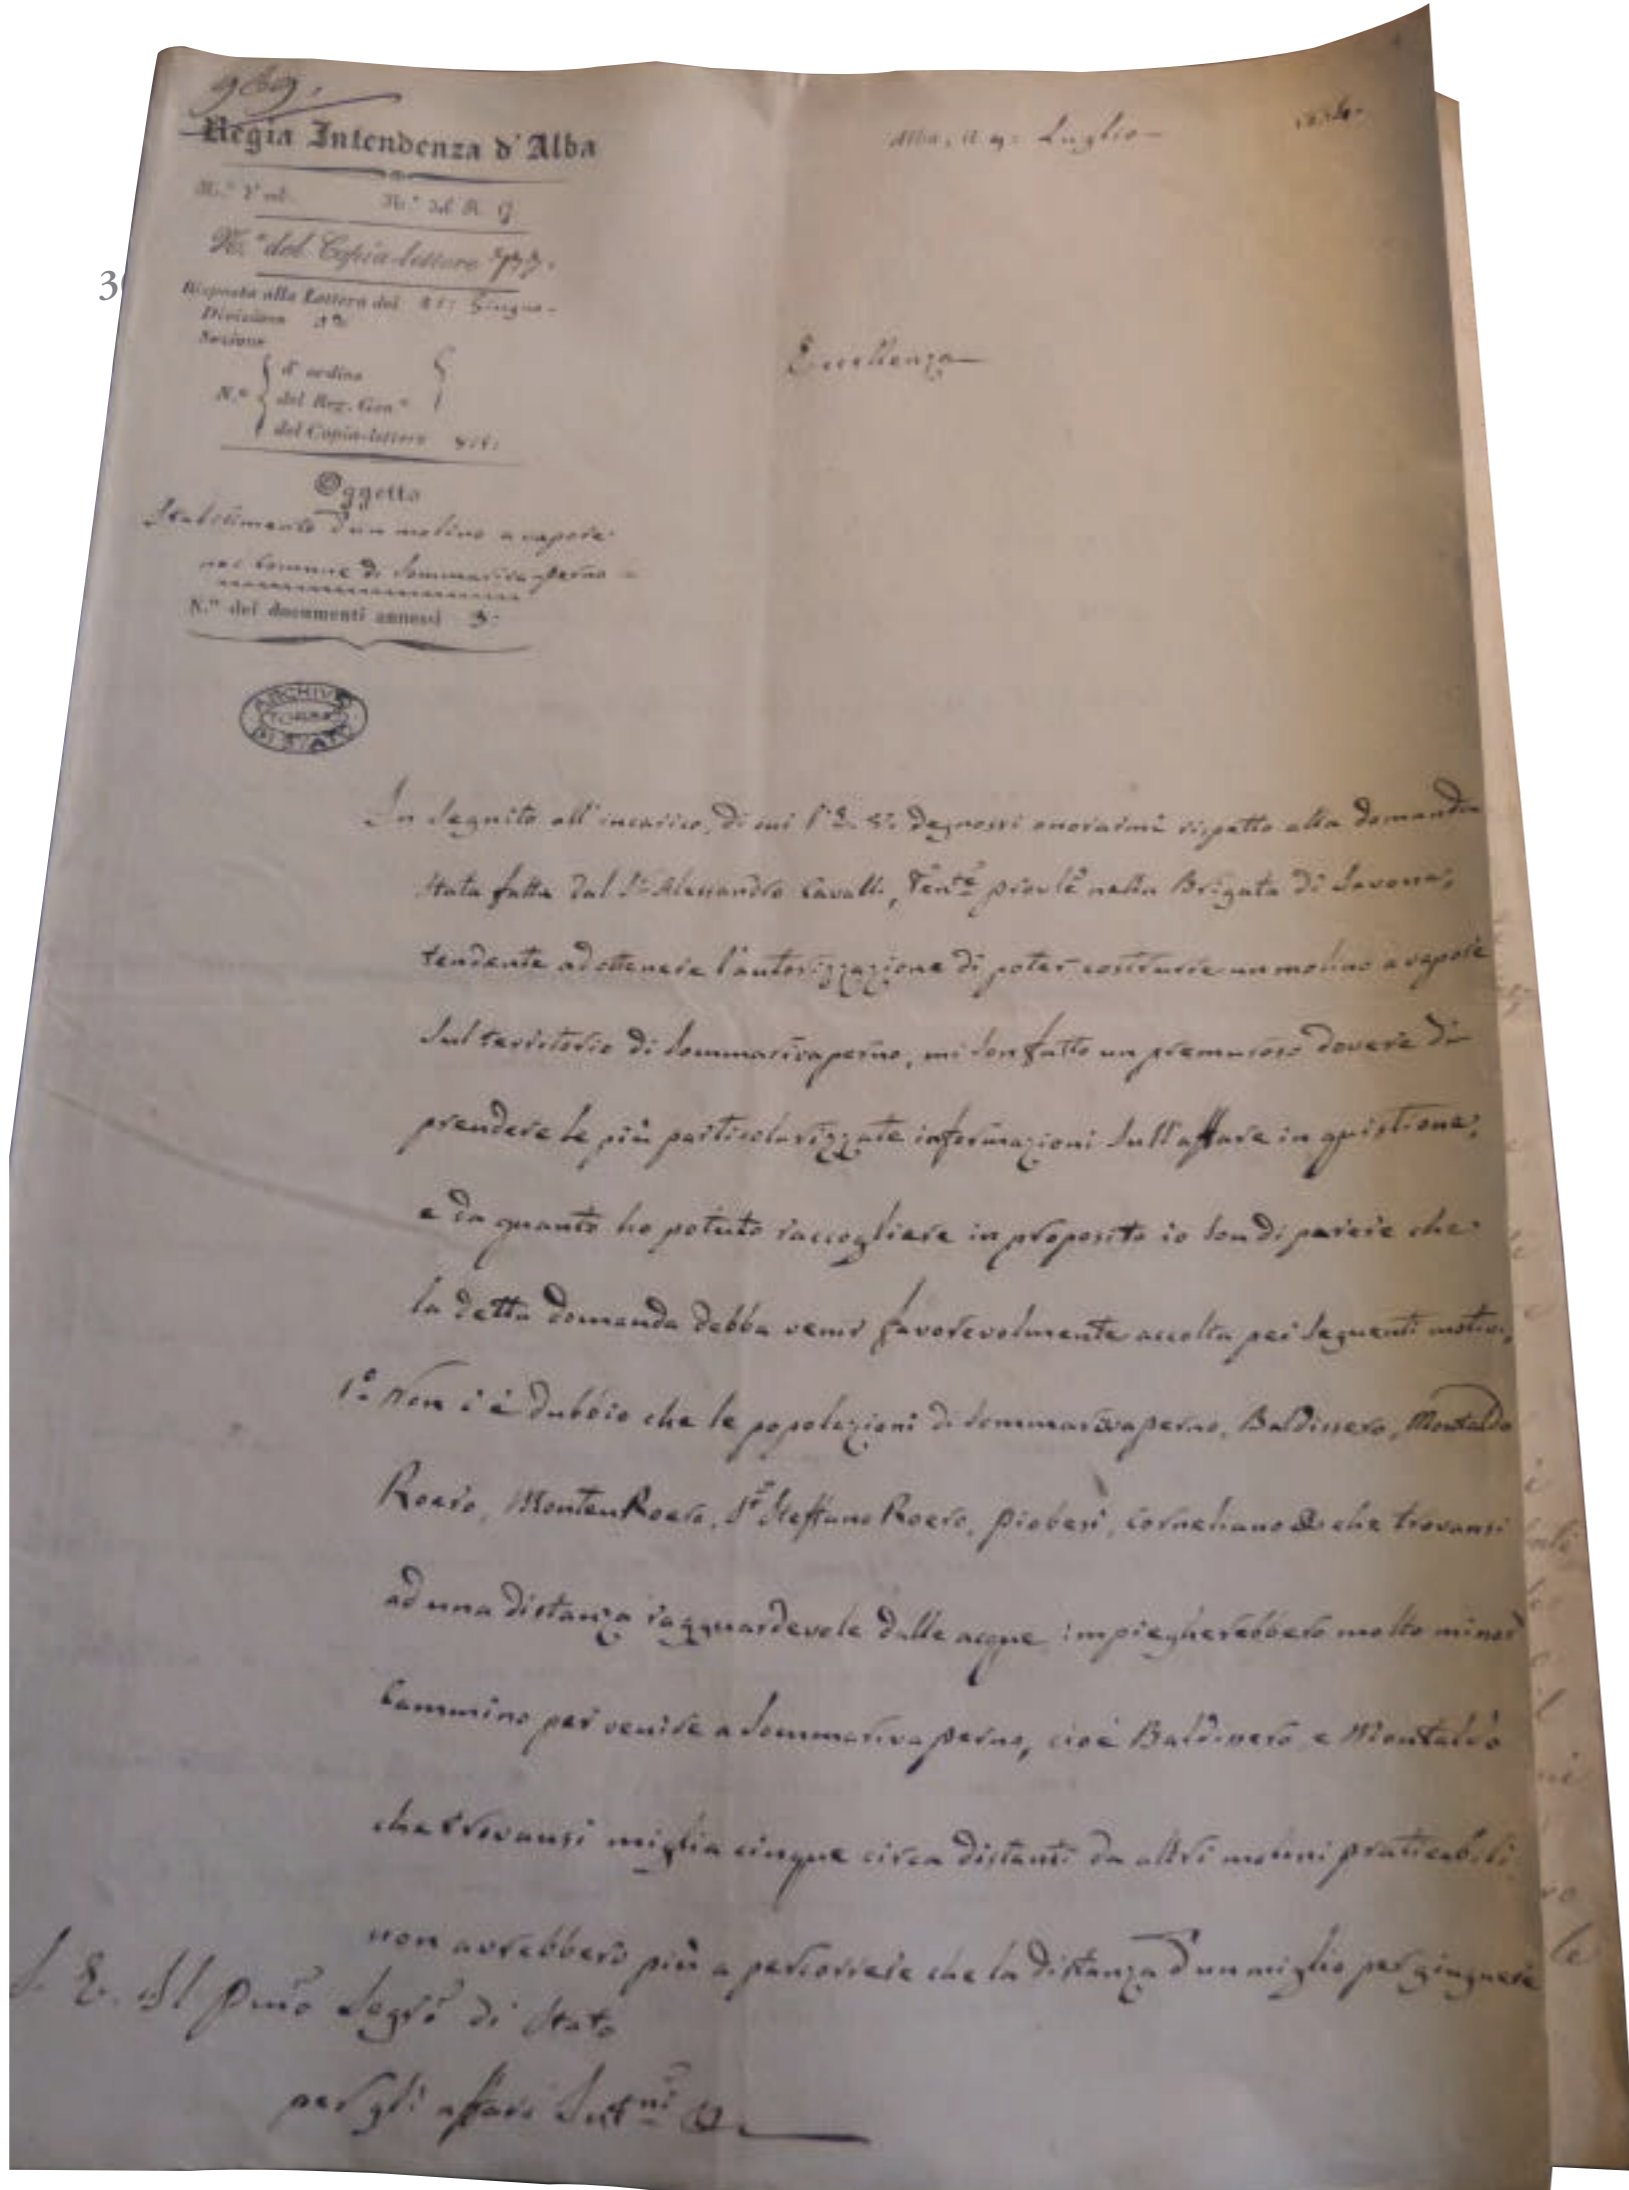 Regia Intendenza d'Alba
Alba, il 9: Luglio
N.° del R. G
N.° del Copia-lettere
Risposta alla Lettera del Giugno
Divisione
Sezione
N.°
d'ordine
del Reg. Gen.e
del Copia-lettere
Oggetto
Stabilimento d'un molino a vapore
nel Comune di Sommarivaperno
N.° dei documenti annessi
Eccellenza
ARCHIVIO
DI STATO
In seguito all'incarico, di cui l'E. V. degnossi onorarmi rispetto alla domanda
stata fatta dal Sr. Alessandro Cavalli, nella Brigata di Savona,
tendente ad ottenere l'autorizzazione di poter costrurre un molino a vapore
sul territorio di Sommarivaperno, mi son fatto un premuroso dovere di
prendere le più particolarizzate informazioni sull'affare in quistione,
e da quanto ho potuto raccogliere in proposito io son di parere che
la detta domanda debba venir favorevolmente accolta pei seguenti motivi,
1.° Non v'è dubbio che le popolazioni di Sommarivaperno, Baldissero, Montaldo
Roero, Monteu Roero, Sto. Steffano Roero, Piobesi, Corneliano che trovansi
ad una distanza ragguardevole dalle acque impiegherebbero molto minor
cammino per venire a Sommariva perno, cioè Baldissero e Montaldo
che trovansi miglia cinque circa distanti da altri molini praticabili
non avrebbero più a percorrere che la distanza d'un miglio per giugnere
S. E. Il Pmo Segro di Stato
per gli affari Int.ni